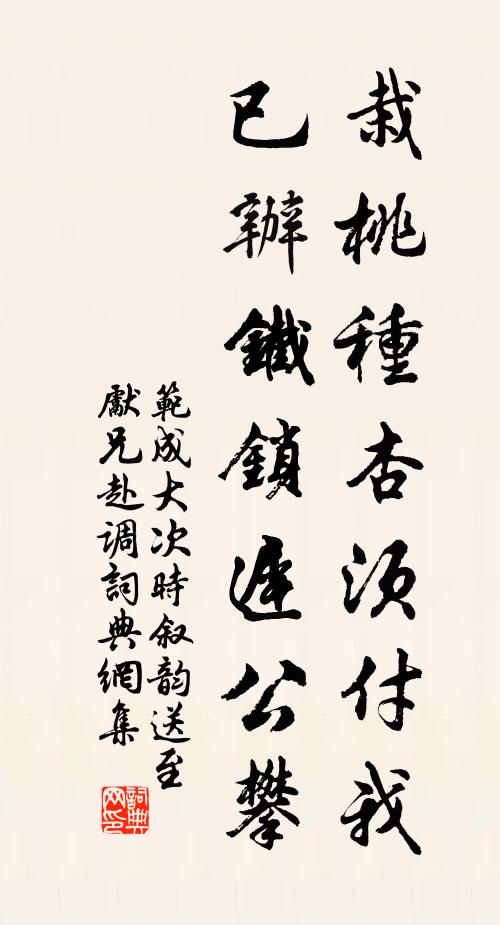 栽桃種杏須付我
已辦鐵鎖遲公攀
範成大次時叙韵送至
獻兄赴调詞典網集
詞典
网印